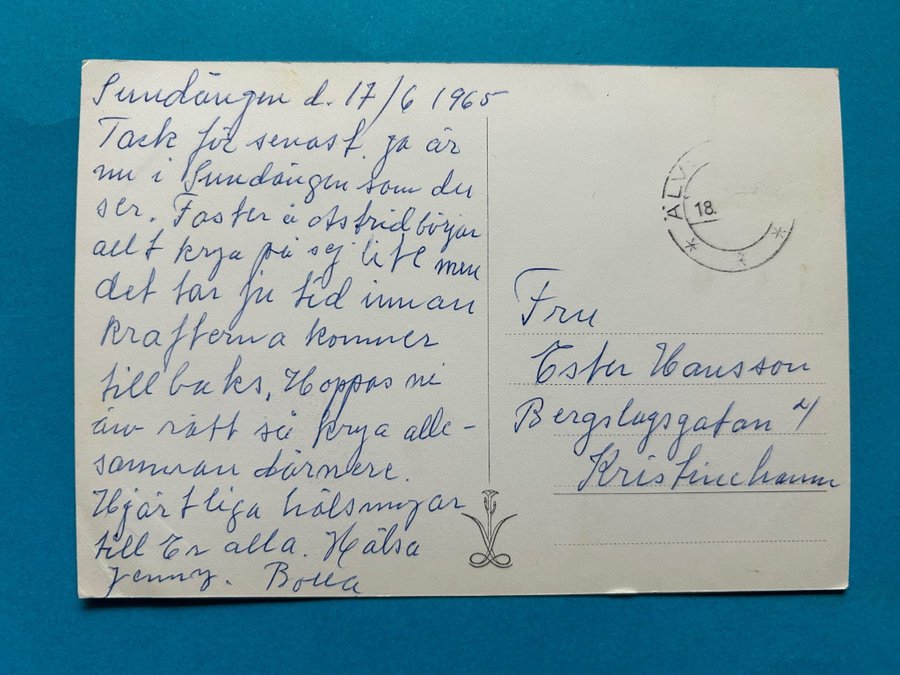 Sundängen d. 17/6 1965
Tack för senast. ja är
nu i Sundängen som du
ser. Faster å Astrid börjar
allt krya på sej lite men
det tar ju tid innan
krafterna kommer
tillbaks, Hoppas ni
äro rätt så krya alle-
samman därnere.
Hjärtliga hälsningar
till Er alla. Hälsa
Jenny.
ÄLV
18.
Fru
Ester Hansson
Bergslagsgatan
Kristinehamn